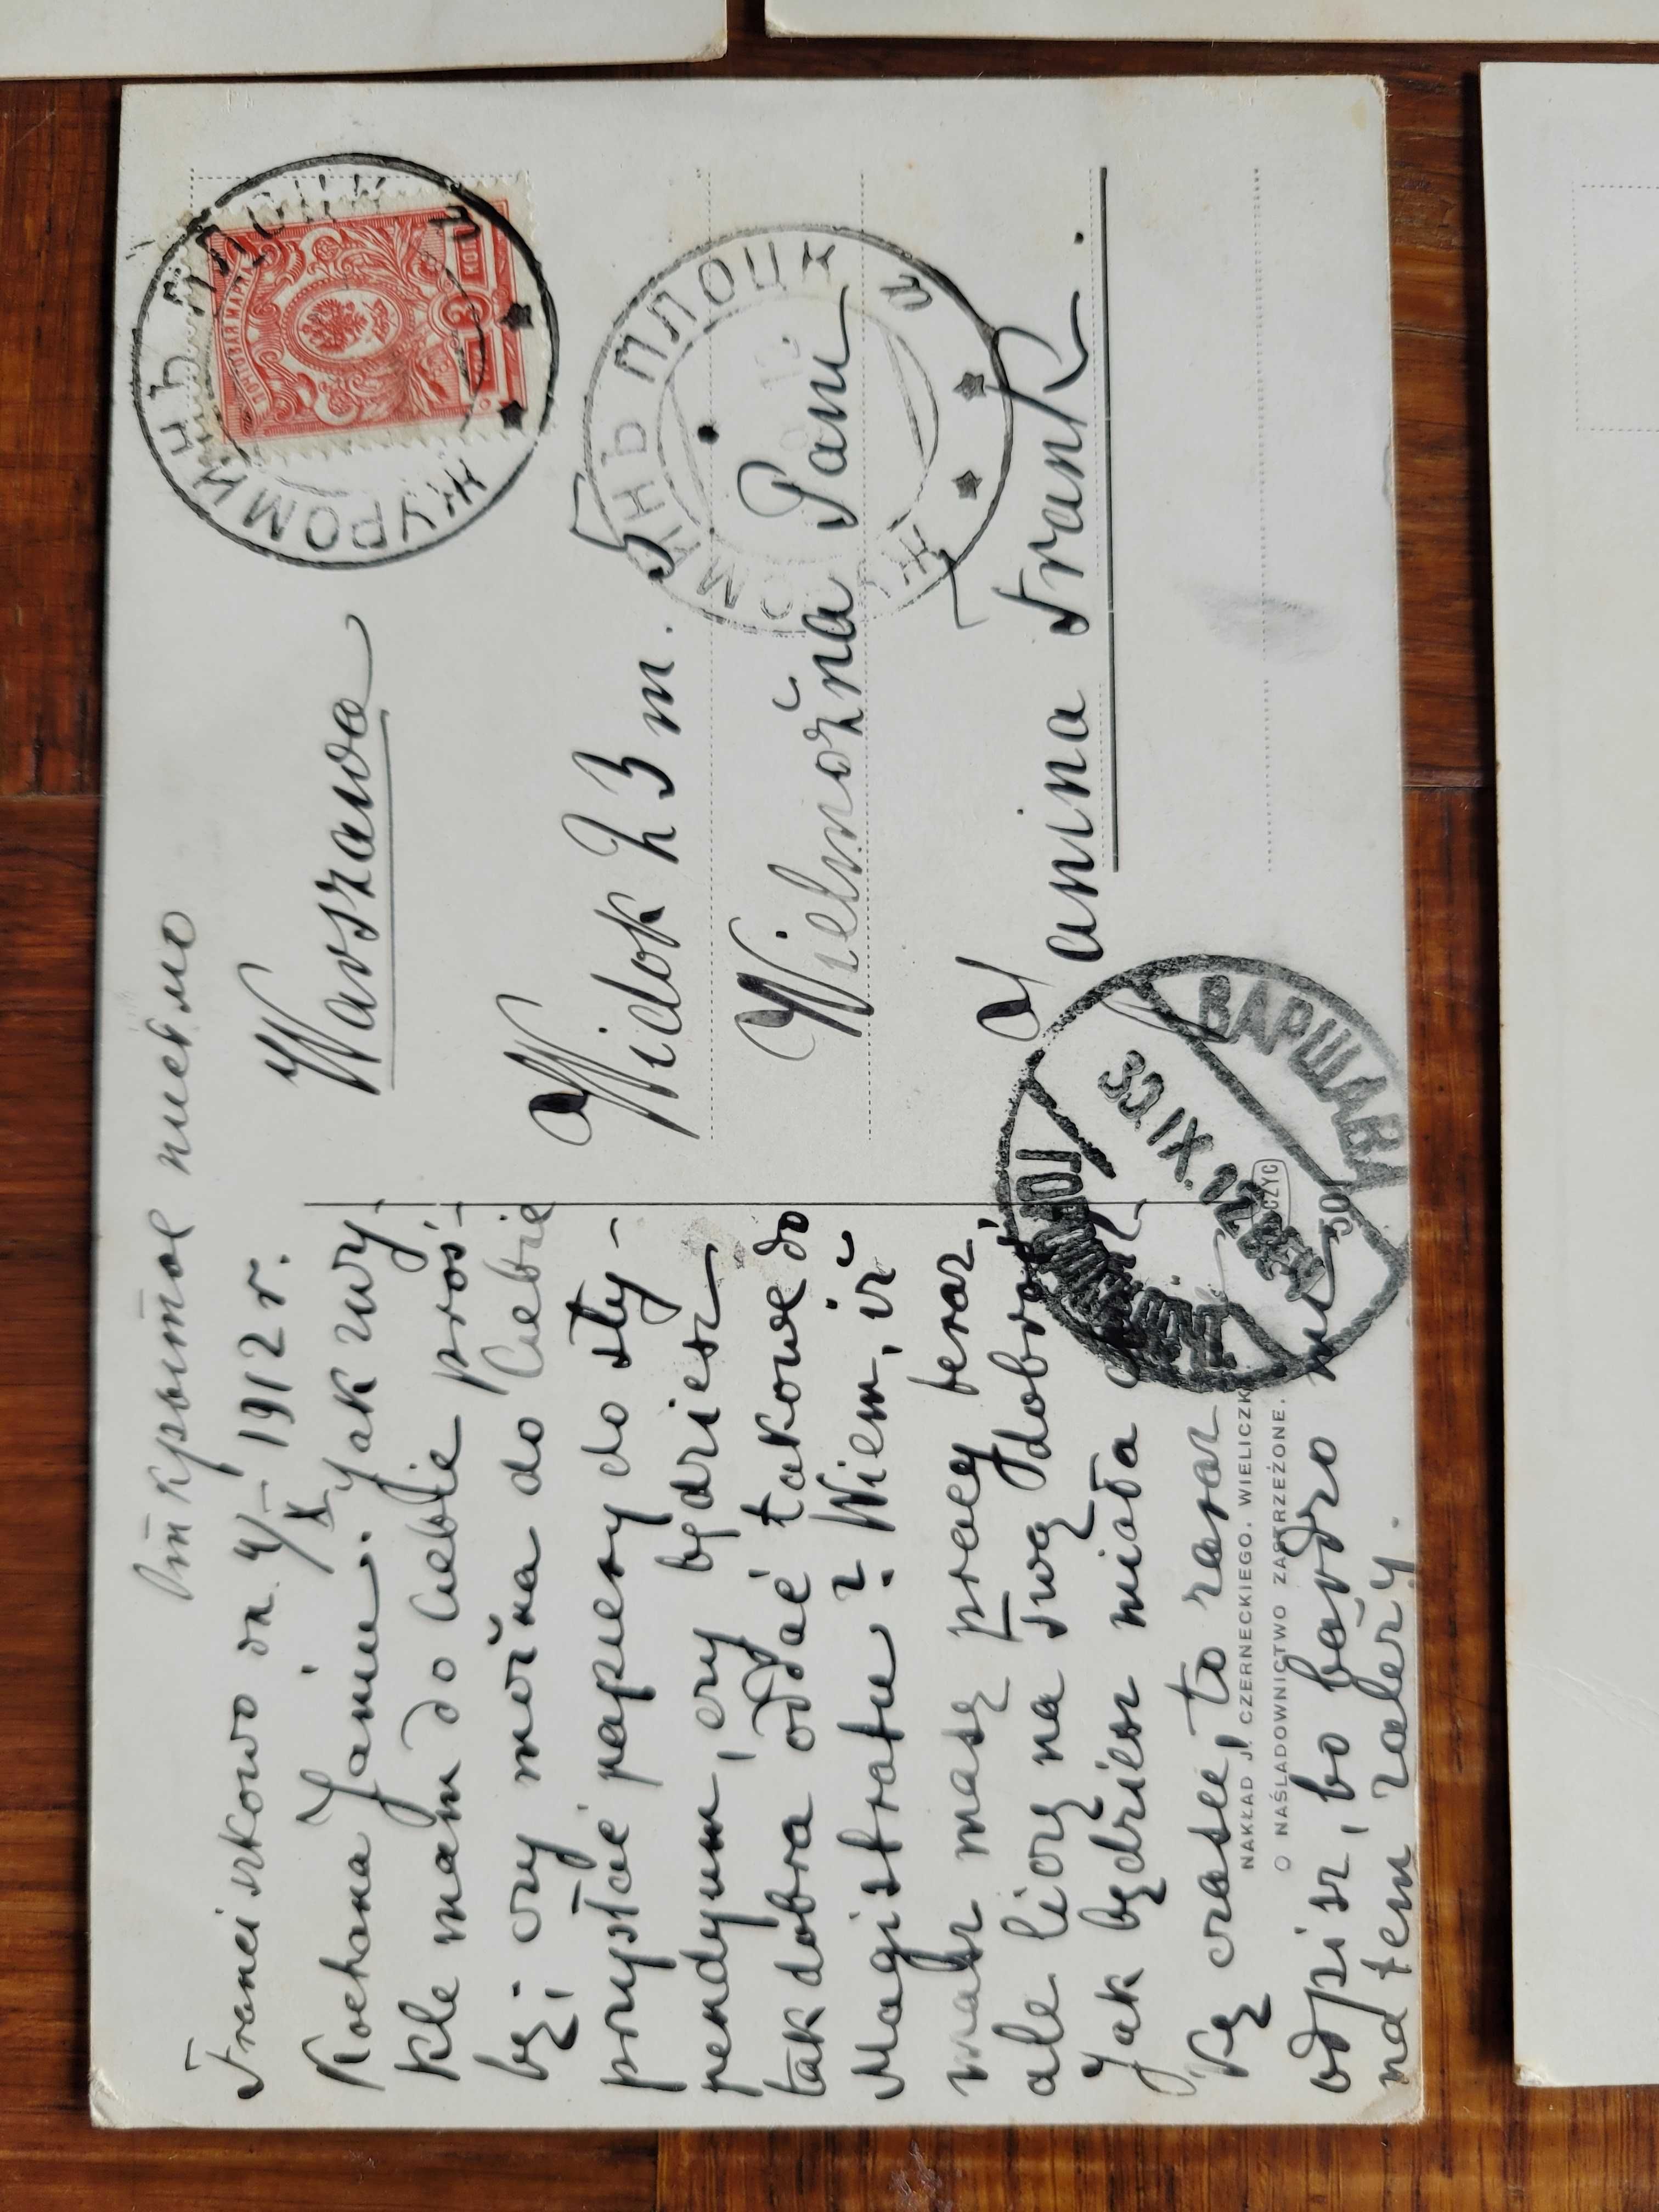 Открытое письмо
Franciszkowo dn. 4/X 1912 r.
Kochana Janiu. Jak zwy-
kle mam do Ciebie proś-
bę; czy można do Ciebie
przysłać papiery do sty-
pendyum, czy będziesz
tak dobra oddać takowe do
Magistratu? Wiem, iż
masz masę pracy teraz,
ale liczę na Twą dobroć.
Jak będziesz miała
kę czasu, to zaraz
odpisz, bo bardzo mi
na tem zależy.
Warszawa
Widok 23 m. 5
Wielmożna Pani
Janina Frank.
ЖУРОМИНЪ ПЛОЦК
ПОЧТОВАЯ МАРКА
3 КОП
ЖУРОМИНЪ ПЛОЦК
ВАРШАВА
30.IX.12
NAKŁAD J. CZERNECKIEGO. WIELICZK
O NAŚLADOWNICTWO ZASTRZEŻONE.
50